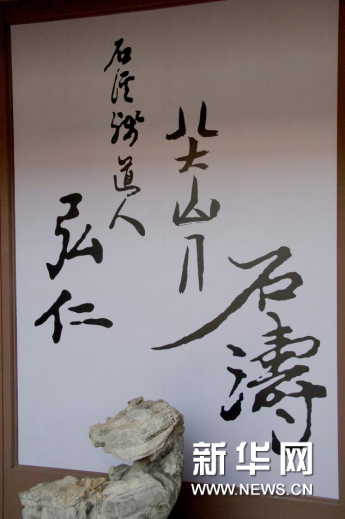 石濤
八大山人
石溪殘道人
弘仁
新华网
WWW.NEWS.CN